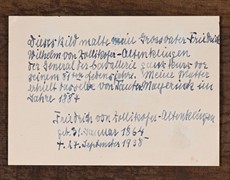 Dieses Bild malte mein Grossvater Friedrich
Wilhelm von Zollikofer-Altenklingen
der General der Cavallerie ganz kurz vor
seinem 81ten Lebensjahr. Meine Mutter
erhielt dasselbe von Tante im
Jahre 1887
Friedrich von Zollikofer-Altenklingen
geb. 31. Januar 1864
† 27. September 1938